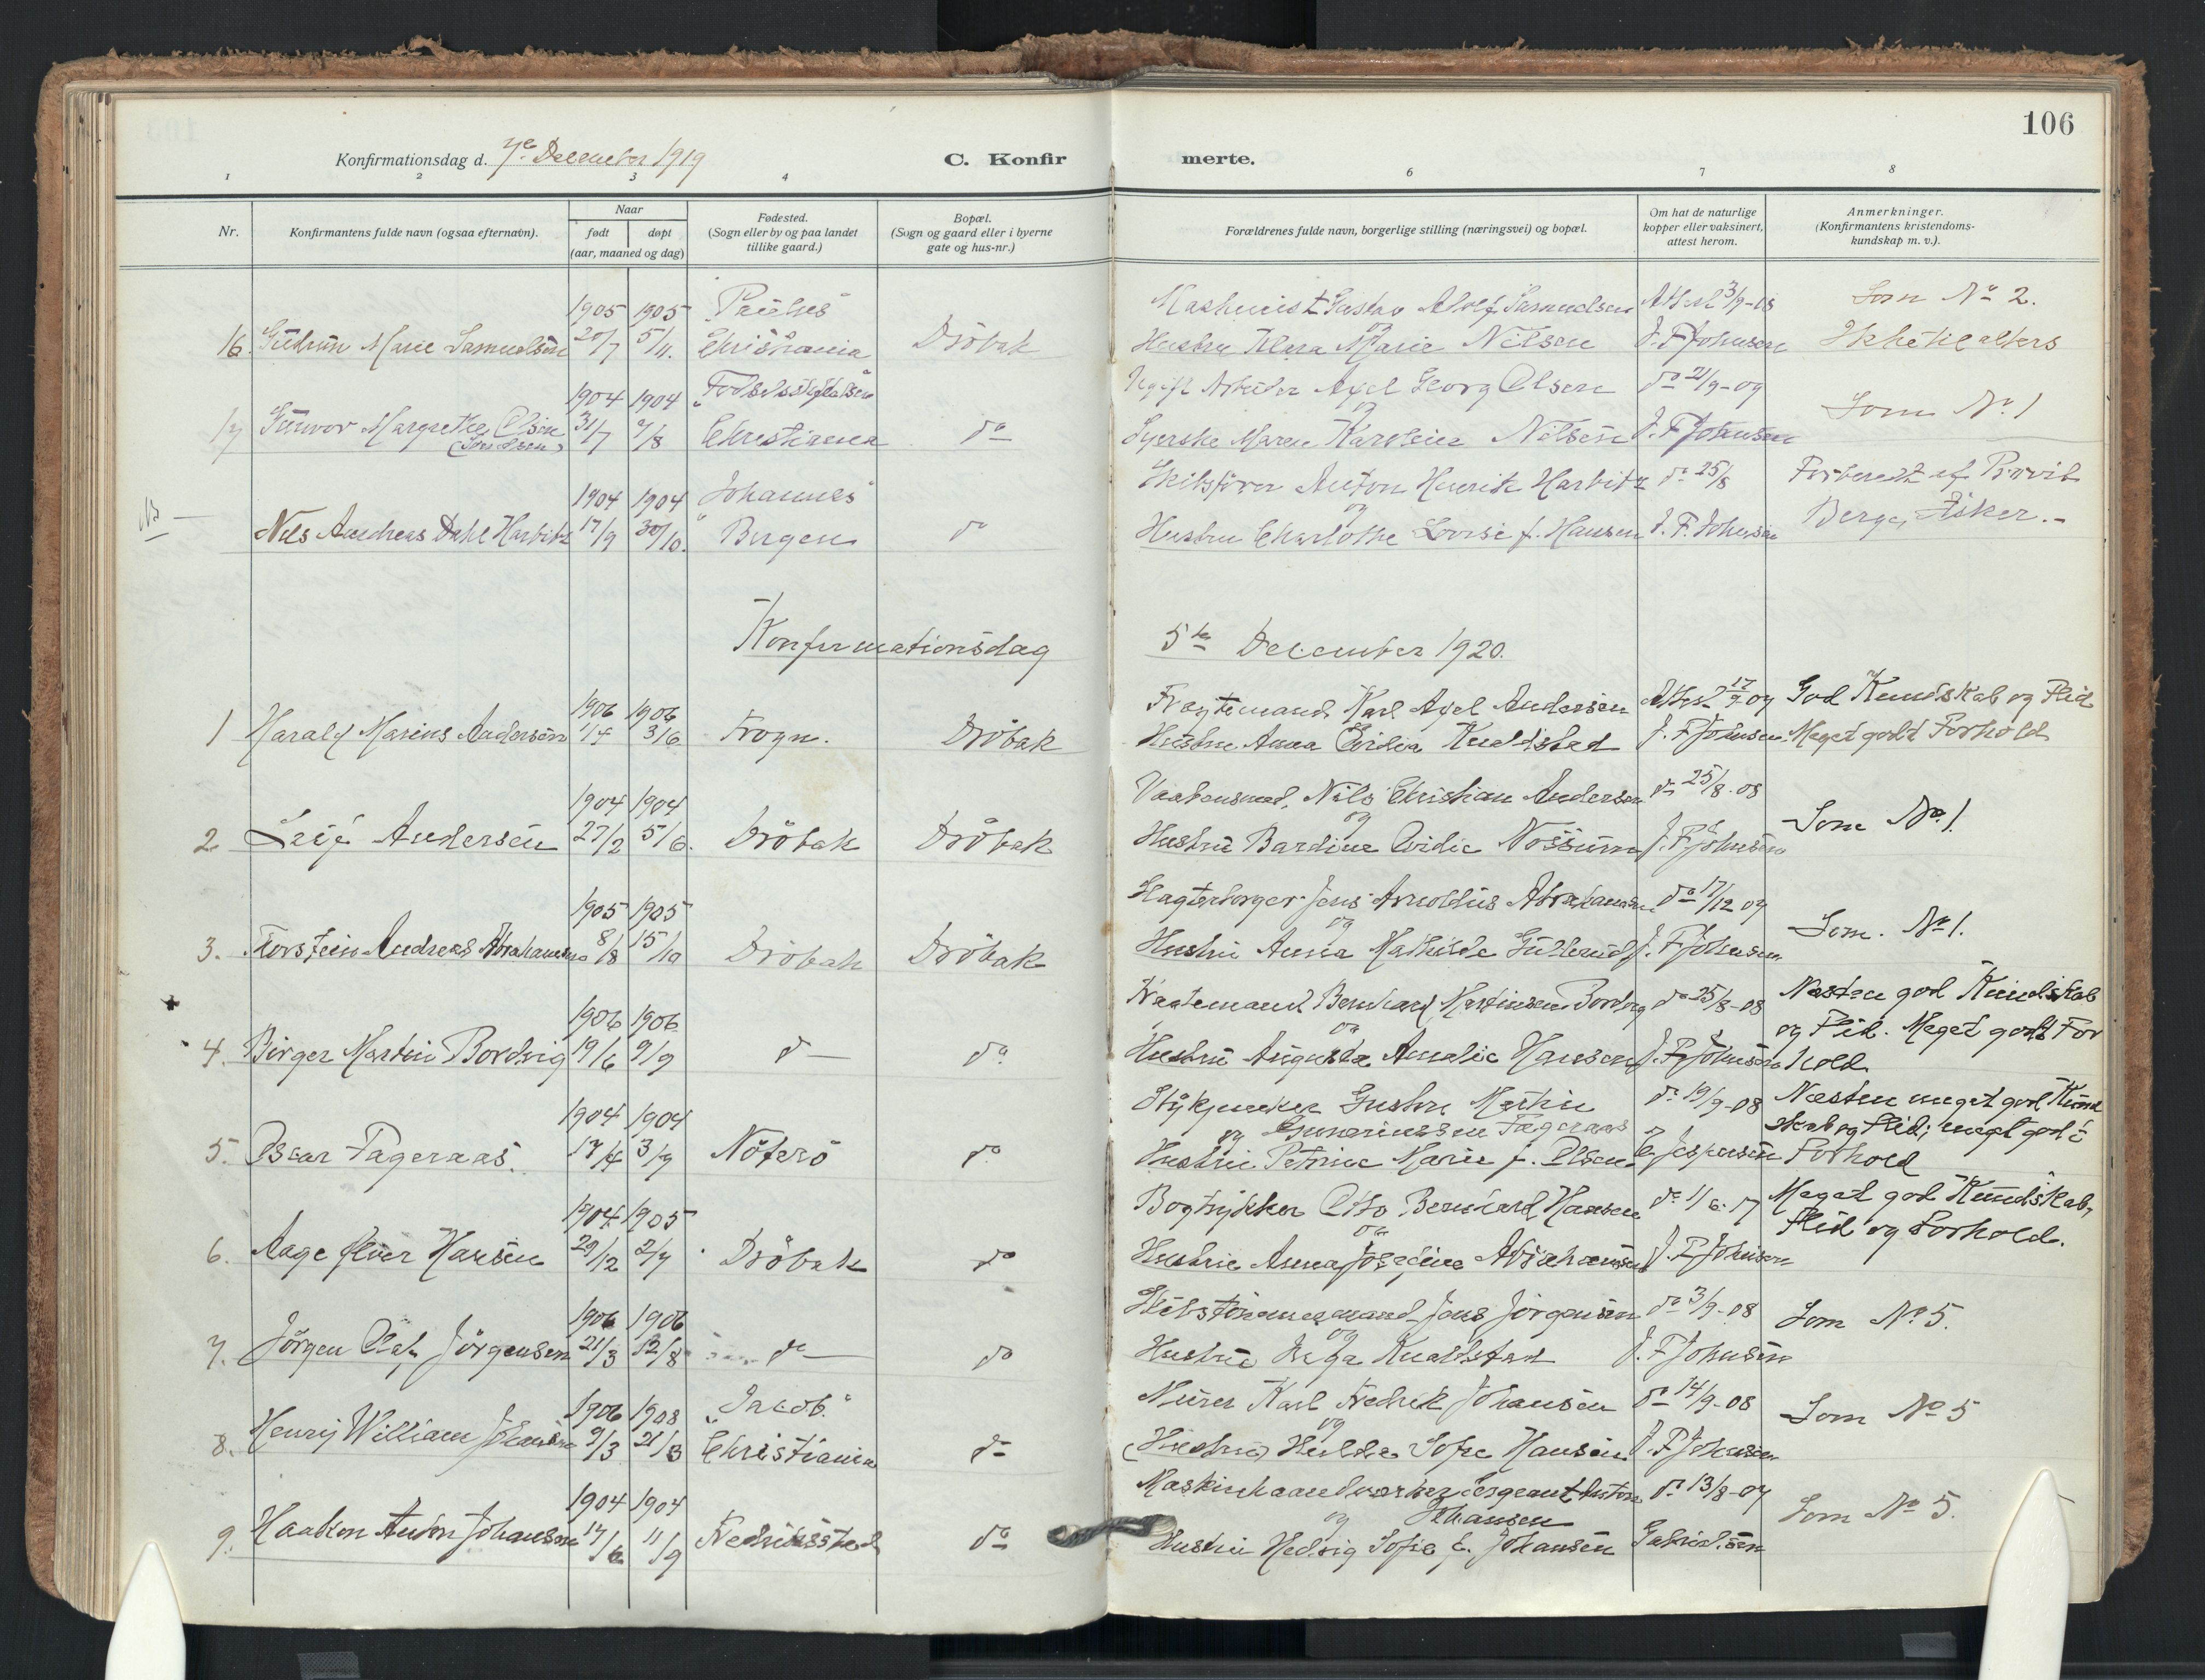 106
Konfirmationsdag d. 7de December 1919
C. Konfir
merte.
1 2 3 4 6 7 8
Nr.
Konfirmantens fulde navn (ogsaa efternavn).
Naar
født
døpt
(aar, maaned og dag)
Fødested.
(Sogn eller by og paa landet
tillike gaard.)
Bopæl.
(Sogn og gaard eller i byerne
gate og hus-nr.)
Forældrenes fulde navn, borgerlige stilling (næringsvei) og bopæl.
Om hat de naturlige
kopper eller vaksinert,
attest herom.
Anmerkninger.
(Konfirmantens kristendoms-
kundskap m. v.).
1905 1905 "Paulus" Maskinist Gustav Adolf Samuelsen Attest 3/9-08 Som No 2.
16. Gudrun Marie Samuelsen 20/7 5/11. Christiania Dröbak og Hustru Klara Marie Nilsen J. F Johnsen Ikke til alters
1904 1904 "Fødselsstiftelsen" Ugift Arbeider Axel Georg Olsen do 21/9-09 Som No 1
17 Gunvor Margrethe Olsen 31/7 /8 Christiania do og Syerske Maren Karoline Nilsen J. F Johnsen
1904 1904 "Johannes" Skibsfører Anton Henrik Harbitz do 25/8 Forberedt af Provst
NB Nils Andreas Dahl Harbitz 17/9 30/10. Bergen do og Hustru Charlothe Lovise f. Hansen J. F. Johnsen Berge, Asker.-
Konfirmationsdag 5te December 1920.
1906 1906 Karl Axel Andersen Attest 17/9 07 God Kundskab og Flid
1 Harald Marius Andersen 1/4 3/6 Frogn. Dröbak Hustru Anna Evidia Knaldstad J. F Johnsen Meget godt Forhold
1904 1904 Vaabensmed, Nils Christian Andersen do 25/8-08
2 Leif Andersen 27/2 5/6. Dröbak Dröbak og Hustru Bardine Evidie Nossum J. F Johnsen Som No 1.
1905 1905 Slagterborger Jens Arnoldus Abrahamsen do 17/12 07
3. Torstein Andreas Abrahamsen 8/8 15/10 Dröbak Dröbak og Hustru Anna Mathilde Gulterud J. F Johnsen Som No 1.
1906 1906 Bernhard Martinsen Bordvig do 25/8-08 Næsten god Kundskab
og Flid. Meget godt For
4. Birger Martin Bordvig 19/6 9/9 do do og Hustru Augusta Amalie Hansen J. F Johnsen hold.
1904 1904 Stykjunker Gustav Martin do 19/9-08 Næsten meget god Kund
og Gunerinssen Fageraas skab og Flid; meget godt
5. Oscar Fageraas. 17/4 3/7 Nøterö do Hustru Petrine Marie f. Olsen C Jespersen Forhold
1904 1905 Bogtrykker Otto Bernhard Hansen do 1/6-17 Meget god Kundskab,
Flid og Forhold.
6. Aage Hansen 29/12 2/7 Dröbak do og Hustru Anna Josefine Abrahamsen J. F Johnsen
1906 1906 Skibstömmermand Jens Jörgensen do 3/9-08 Som No 5.
7. Jörgen Olaf Jörgensen 21/3 12/8 do do og Hustru Knaldstad J. F Johnsen
1906 1908 "Jacob." Murer Karl Fredrik Johansen do 14/9-08 Som No 5
8. Henry William Johansen 9/3 21/3 Christiania do og (Hustru) Hulda Sofie Hansen J. F Johnsen
1904 1904 Maskinhaandverker Sergeant Anton do 13/8-07
og Johansen Som No 5.
9. Haakon Anton Johansen 17/6 11/9 Fredriksstad do Hustru Hedvig Sofie f. Johansen Gabrielsen